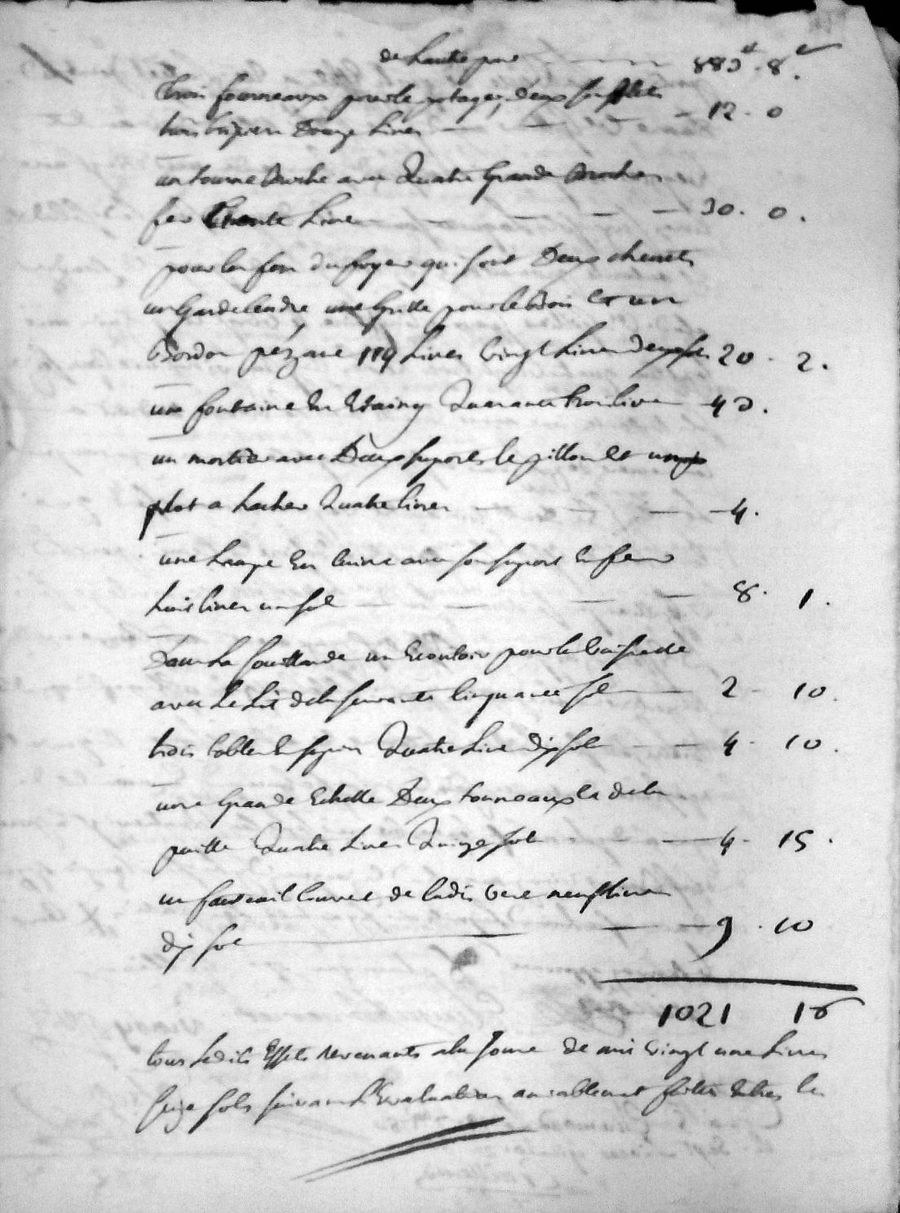 de Lautre par 883 lt 8 s
trois fourneaux pour le potager, deux soufflets
trois trepiers Douze Livres 12. 0
un tourne broche avec Quatre Grande broches
fer trente Livre 30. 0.
pour les fers du foyer qui sont Deux chenets
un Gardecendre, une Grille pour le bois et un
Bordon pézant 114 Livres vingt Livres deux sols 20. 2.
une fontaine En Etaing Quarante trois livres 43.
un mortier avec Deux suports le pillon et un
plot a hacher Quatre livres 4.
une Lampe En cuivre avec son suport En fer
huit livres un sol 8. 1.
Dans La souillarde un Ecouloir pour la vaisselle
avec Le Lit de la servante cinquante sol 2. 10.
trois tables de sapin Quatre Livre dix sol 4. 10.
une Grande Echelle Deux tonneaux et de la
paille Quatre Livres Quinze sols 4. 15.
un fauteuil couvert de cadis vert neuf livres
dix sol 9. 10
1021 16
tous Lesdits Effets revenants a la some de mil vingt une Livres
seize sols suivant L'Evaluation amiablement faitte Entres les